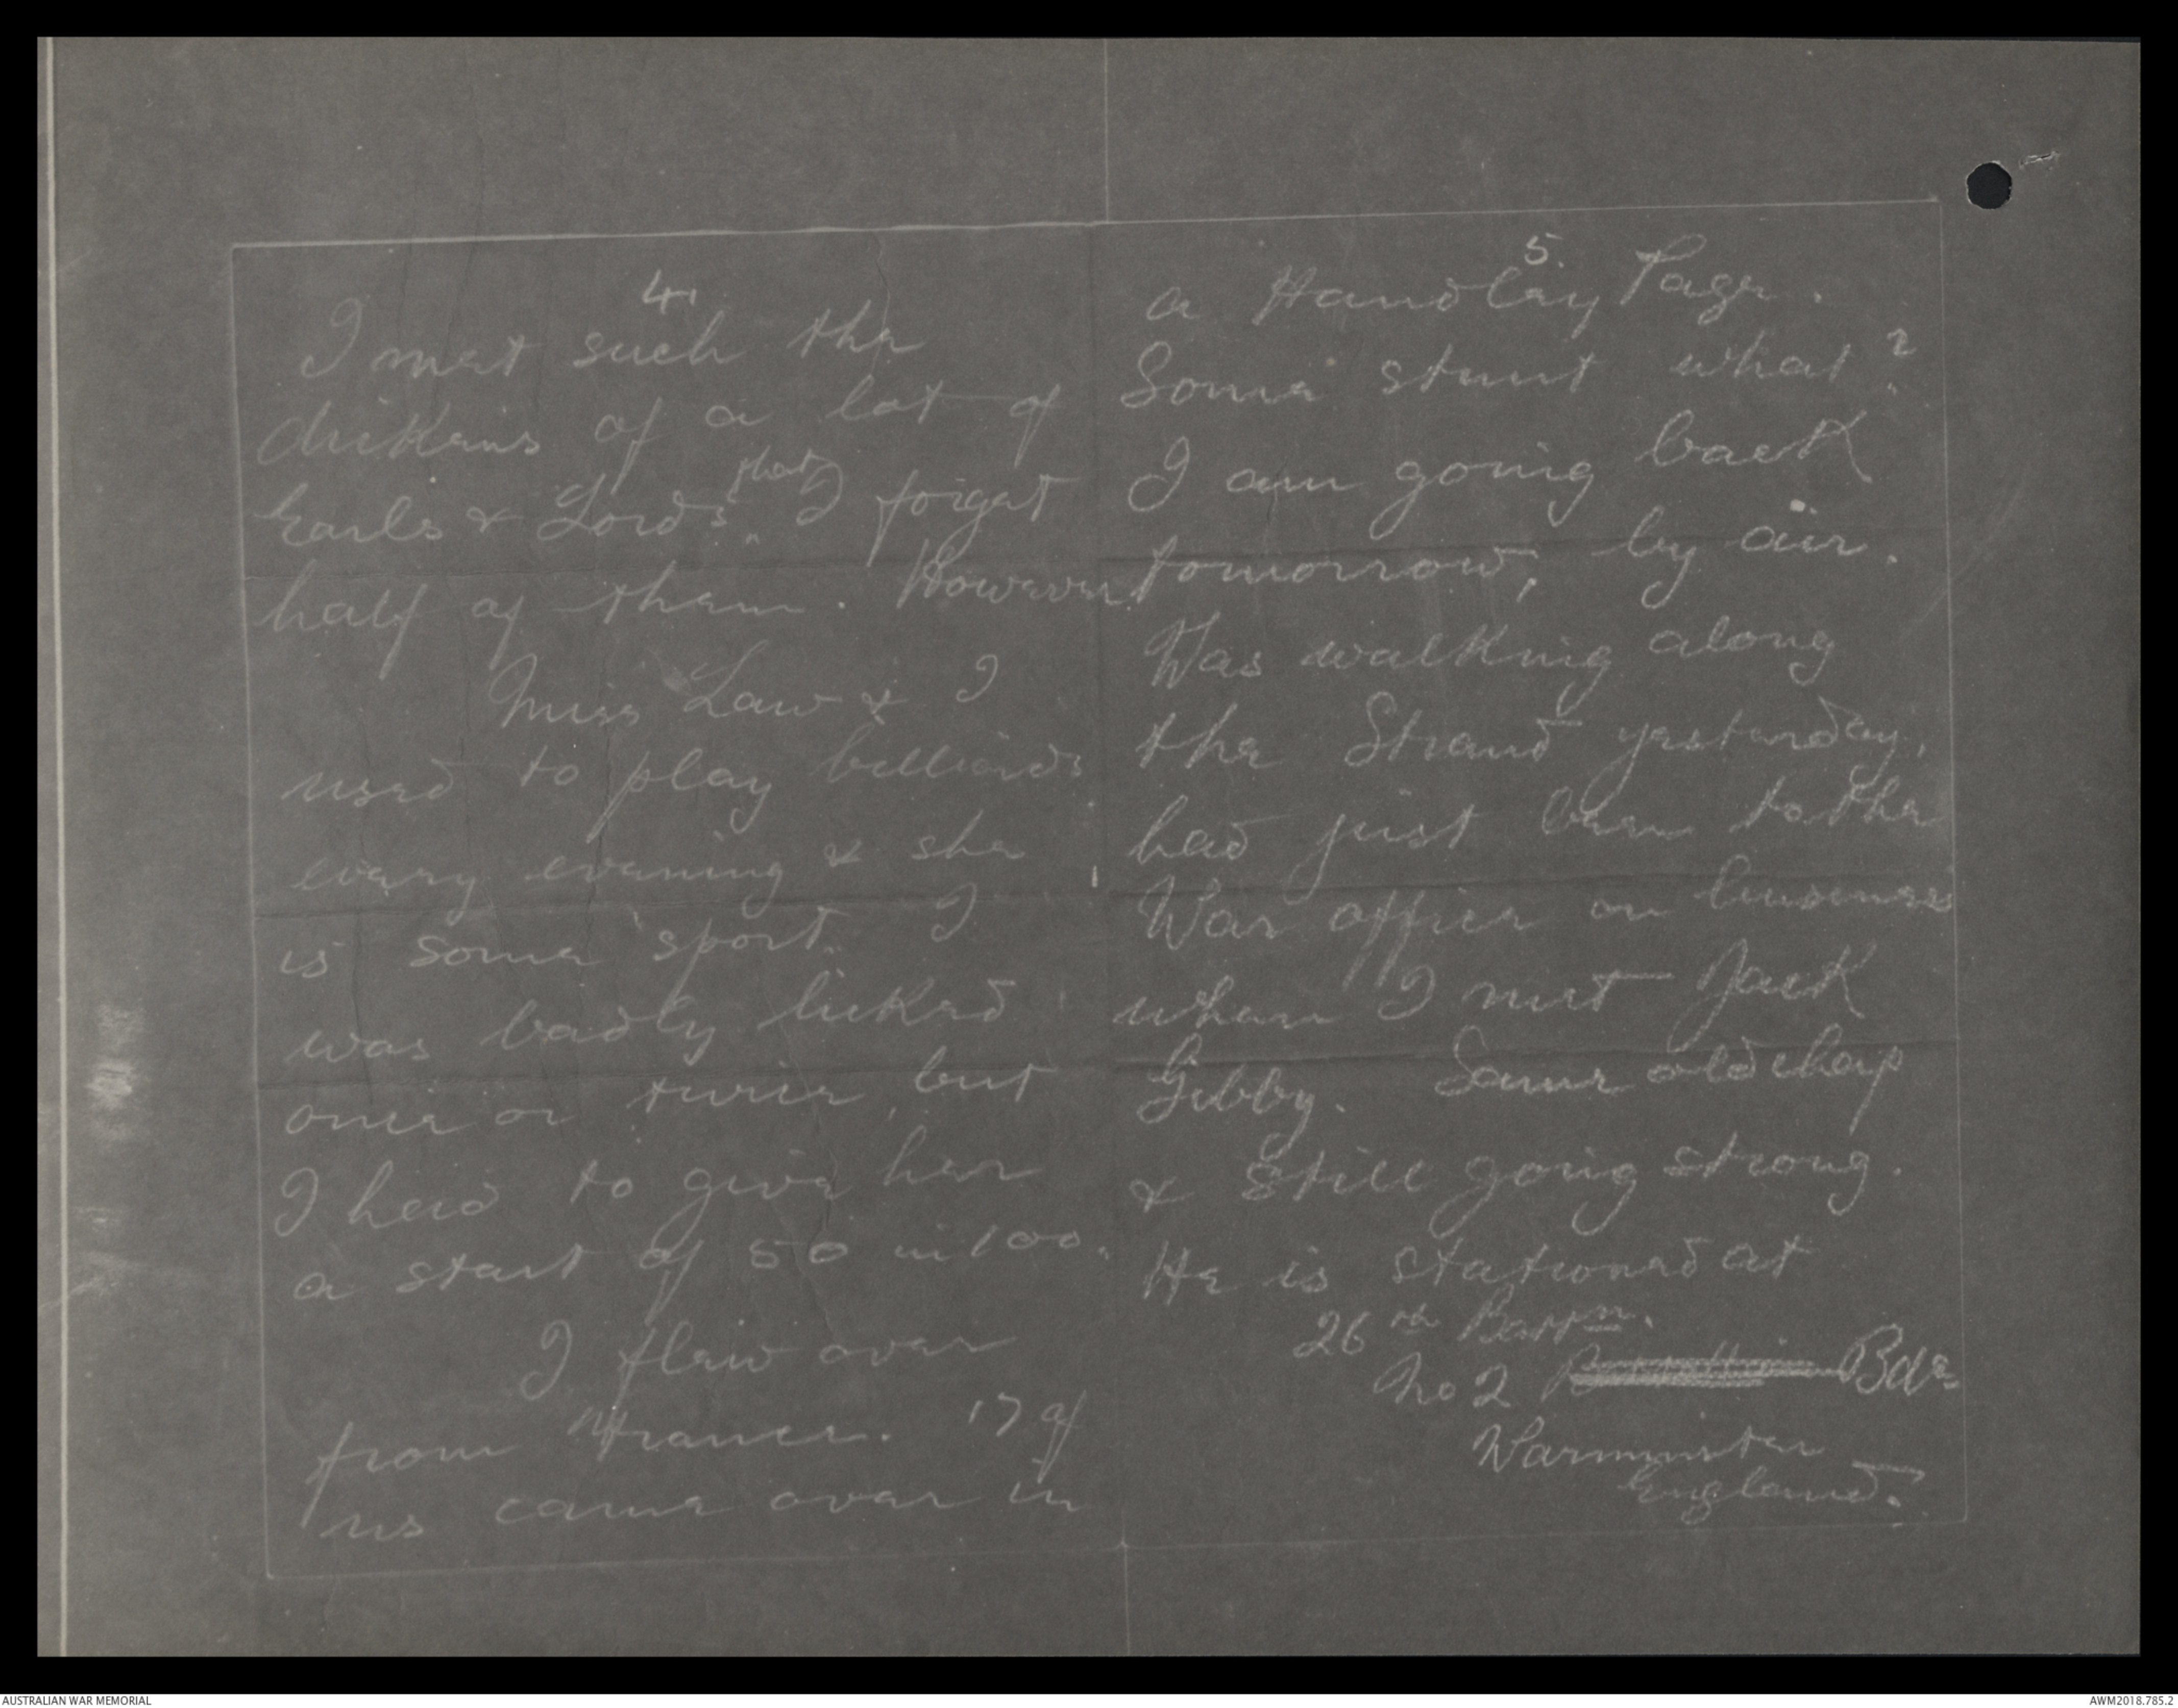 4.
I met such the
dickens of a lot of
Earls & Lords, that I forget
half of them. However
Miss Law & I
used to play billiards
every evening & she
is some sport. I
was badly licked
once or twice, but
I had to give her
a start of 50 in 100.
I flew over
from France. 17 of
us came over in
5.
a Handley Page.
Some stunt what?
I am going back
tomorrow, by air.
Was walking along
the Strand yesterday,
had just been to the
War office on business
when I met Jack
Gibby. Same old chap
& still going strong.
He is stationed at
26th Battn.
No 2 Bde
Warminster
England.
AUSTRALIAN WAR MEMORIAL
AWM2018.785.2